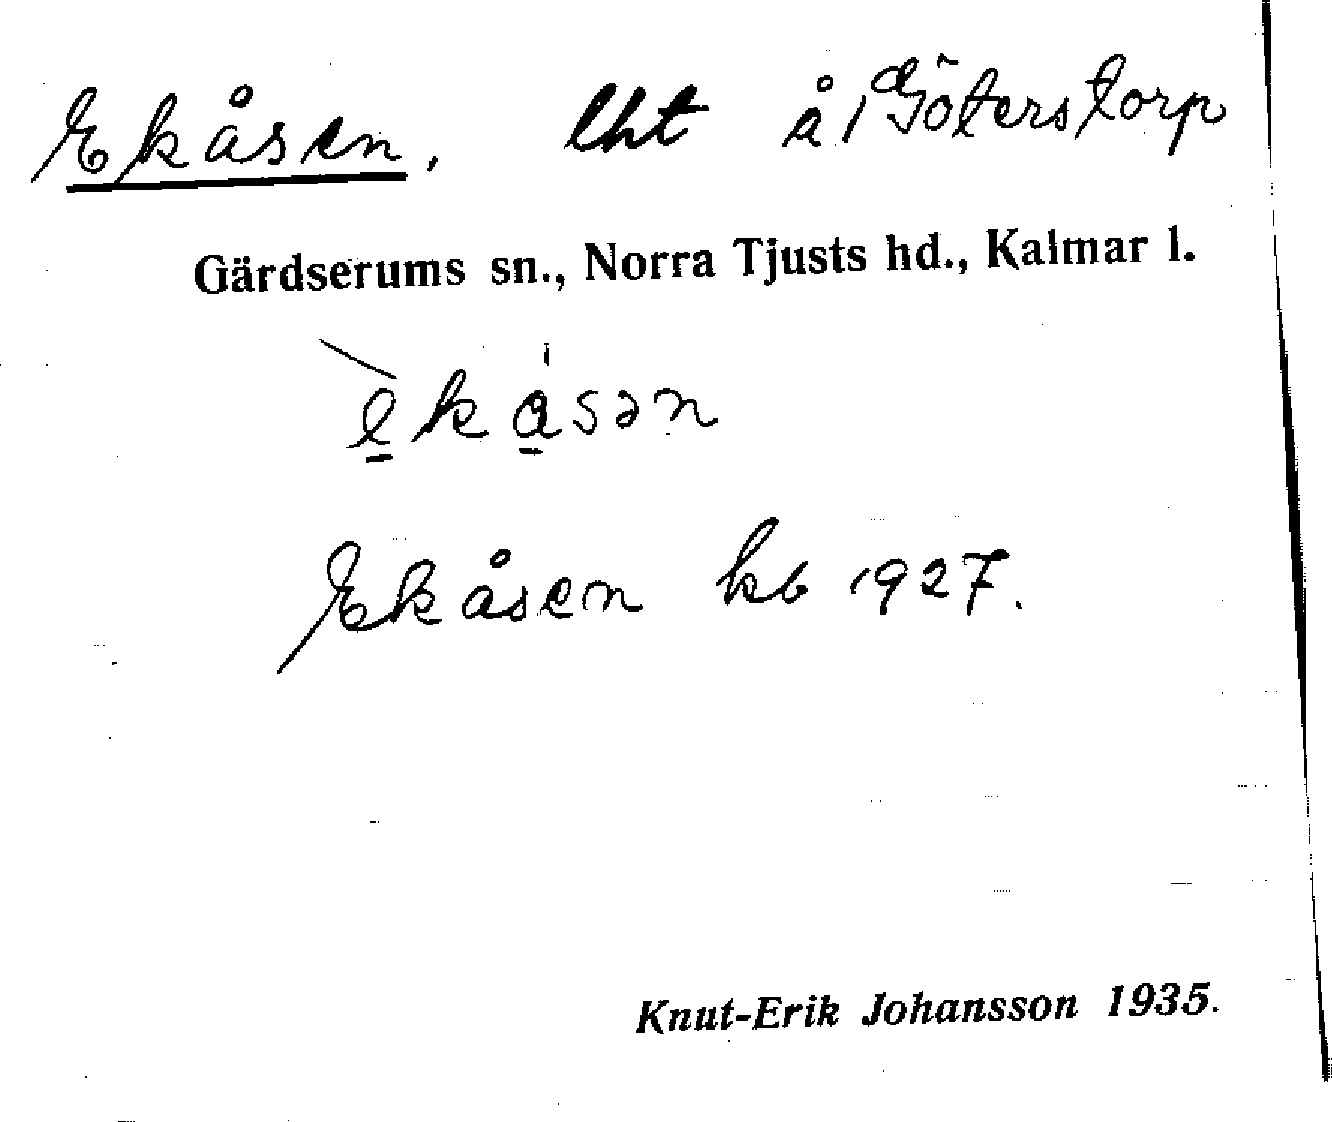 Ekåsen, lht å Göterstorp
Gärdserums sn., Norra Tjusts hd., Kalmar l.
èkåsən
Ekåsen kb 1927.
Knut-Erik Johansson 1935.